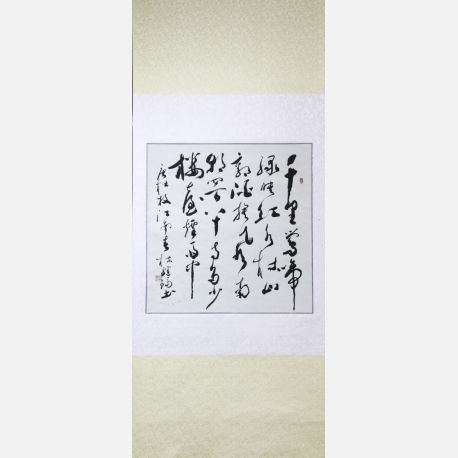 千里莺啼
绿映红水村山
郭酒旗风南
朝四百八十寺多少
楼臺煙雨中
唐杜牧江南春 书